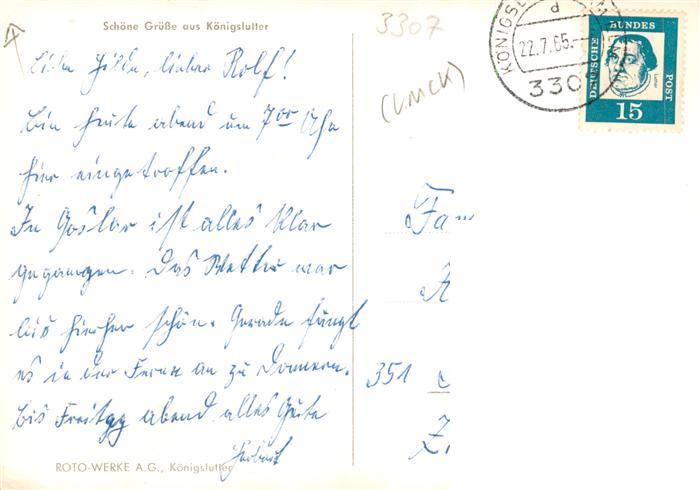 Schöne Grüße aus Königslutter
3307
(KMCK)
Liebe Hilde, lieber Rolf!
Bin heute abend um 7ºº Uhr
hier eingetroffen.
In Goslar ist alles klar
gegangen. Das Wetter war
bis hierher schön. Gerade fängt
es in der Ferne an zu Donnern.
Bis Freitag abend alles Gute
Herbert
ROTO-WERKE A.G., Königslutter
KÖNIGSL
d
22.7.65.
330
DEUTSCHE BUNDES POST
15
Fam
351